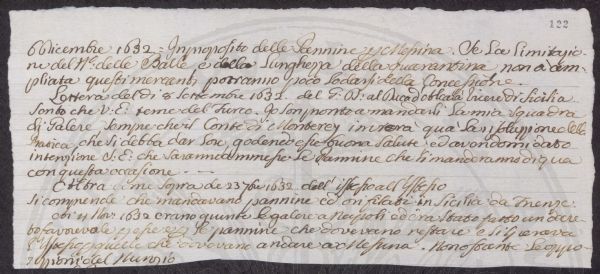 122
6 Dicembre 1632 = In proposito delle Pannine per Messina. Se la limitazio-
ne del N.º delle Balle e della lunghezza della quarantina non è am-
pliata questi mercanti potranno poco lodarsi della Concessione.
Lettera del dì 8 Settembre 1632 del G. D. al Duca d'Alcalà Viceré di Sicilia
Sento che V. E. teme del Turco. Io son pronto a mandarli la mia squadra
di Galere sempre che il Conte di Monterey invierà qua la spedizione della
pratica che si debba dar loro, godendo esse buona salute ed avendomi dato
intenzione V. E. che saranno ammesse le pannine che li manderanno di qua
con questa occasione. —
Altra come sopra de 23 7bre 1632 dell' istesso all' istesso
Si comprende che mancavano pannine ed on filati in Sicilia da Firenze.
6 Nov. 1632 erano giunte le galere a Napoli ed era stato
favorevole per le pannine che dovevano restare e si sperava
l'istesso per quelle che dovevano andare a Messina. Nonostante le oppo-
sizioni del Nunzio